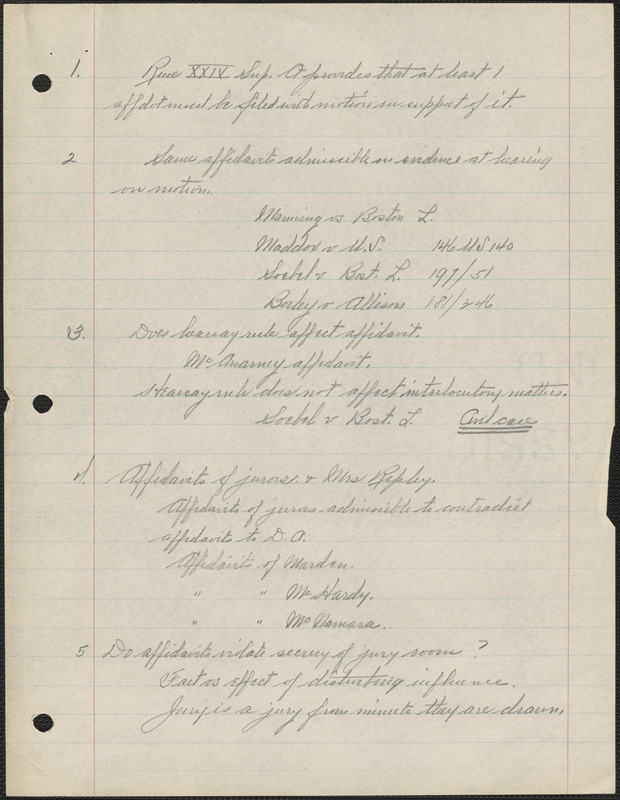 1. Rule XXIV Sup. Ct provides that at least 1
affdvt must be filed with motion in support of it.
2 Same affidavits admissible in evidence at hearing
on motion.
Manning vs Boston L.
Maddox v U.S. 146 US 140
Soebel v Bost. L. 197/51
Borley v Allison 181/246
3. Does hearsay rule affect affidavit.
McAnarney affidavit.
Hearsay rule does not affect interlocutory matters.
Soebel v Bost. L. Civil case
4. Affidavits of jurors & Mrs Ripley.
Affidavits of jurors admissible to contradict
affidavits to D.A.
Affidavits of Marden.
" " McHardy.
" " McNamara.
5 Do affidavits violate secrecy of jury room?
Fact vs effect of disturbing influence.
Jury is a jury from minute they are drawn.